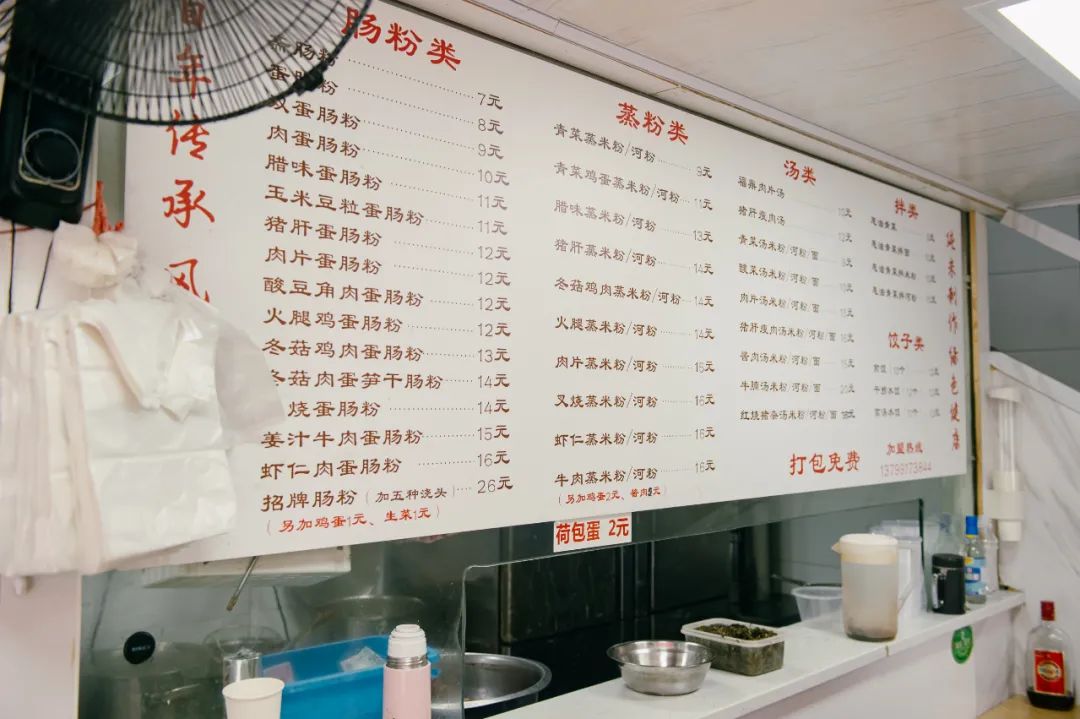 百年传承风
肠粉类
素肠粉 7元
蛋肠粉 8元
双蛋肠粉 9元
肉蛋肠粉 10元
腊味蛋肠粉 11元
玉米豆粒蛋肠粉 11元
猪肝蛋肠粉 12元
肉片蛋肠粉 12元
酸豆角肉蛋肠粉 12元
火腿鸡蛋肠粉 12元
冬菇鸡肉蛋肠粉 13元
冬菇肉蛋笋干肠粉 14元
烧蛋肠粉 14元
姜汁牛肉蛋肠粉 15元
虾仁肉蛋肠粉 16元
招牌肠粉（加五种浇头） 26元
（另加鸡蛋1元、生菜1元）
蒸粉类
青菜蒸米粉/河粉 9元
青菜鸡蛋蒸米粉/河粉 11元
腊味蒸米粉/河粉 13元
猪肝蒸米粉/河粉 14元
冬菇鸡肉蒸米粉/河粉 14元
火腿蒸米粉/河粉 14元
肉片蒸米粉/河粉 15元
叉烧蒸米粉/河粉 16元
虾仁蒸米粉/河粉 16元
牛肉蒸米粉/河粉 16元
（另加鸡蛋2元、酱肉9元）
荷包蛋 2元
汤类
福鼎肉片汤
猪肝瘦肉汤
青菜汤米粉/河粉/面
酸菜汤米粉/河粉/面
肉片汤米粉/河粉/面
猪肝瘦肉汤米粉/河粉/面
酱肉汤米粉/河粉/面
牛腩汤米粉/河粉/面
红烧猪杂汤米粉/河粉/面
拌类
葱油青菜
葱油青菜拌面
葱油青菜拌米粉
葱油青菜拌河粉
饺子类
打包免费
加盟热线
13799173844
纯米制作 绿色健康